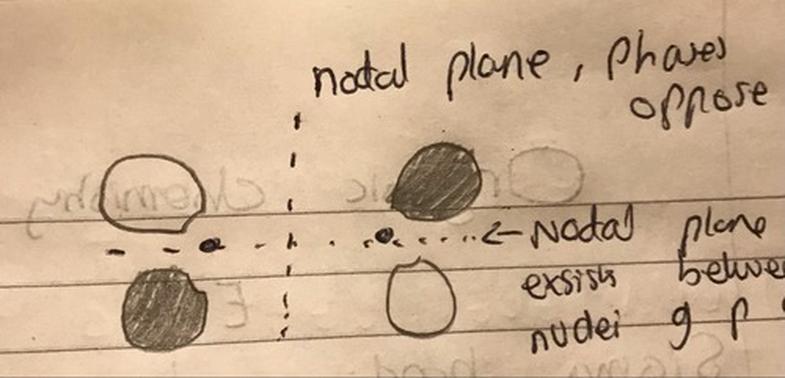 nodal plane , phases
oppose
<- Nodal plane
exsists
nuclei g p